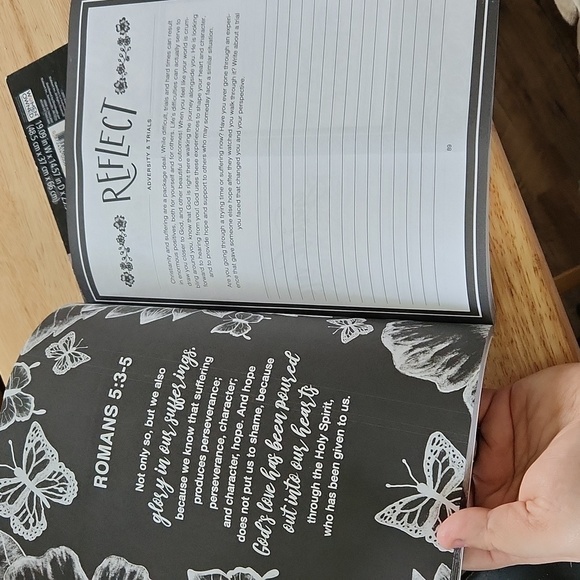 ROMANS 5:3-5
Not only so, but we also
glory in our sufferings,
because we know that suffering
produces perseverance;
perseverance, character;
and character, hope. And hope
does not put us to shame, because
God's love has been poured
out into our hearts
through the Holy Spirit,
who has been given to us.
REFLECT
ADVERSITY & TRIALS
Christianity and suffering are a package deal. While difficult, trials and hard times can result
in enormous positives, both for yourself and for others. Life's difficulties can actually serve to
draw you closer to God, and other beautiful outcomes! When you feel like your world is crum-
bling around you, know that God is right there walking the journey alongside you. He is looking
forward to hearing from you! God uses these experiences to shape your heart and character,
and to provide hope and support to others who may someday face a similar situation.
Are you going through a trying time or suffering now? Have you ever gone through an experi-
ence that gave someone else hope after they watched you walk through it? Write about a trial
you faced that changed you and your perspective.
89